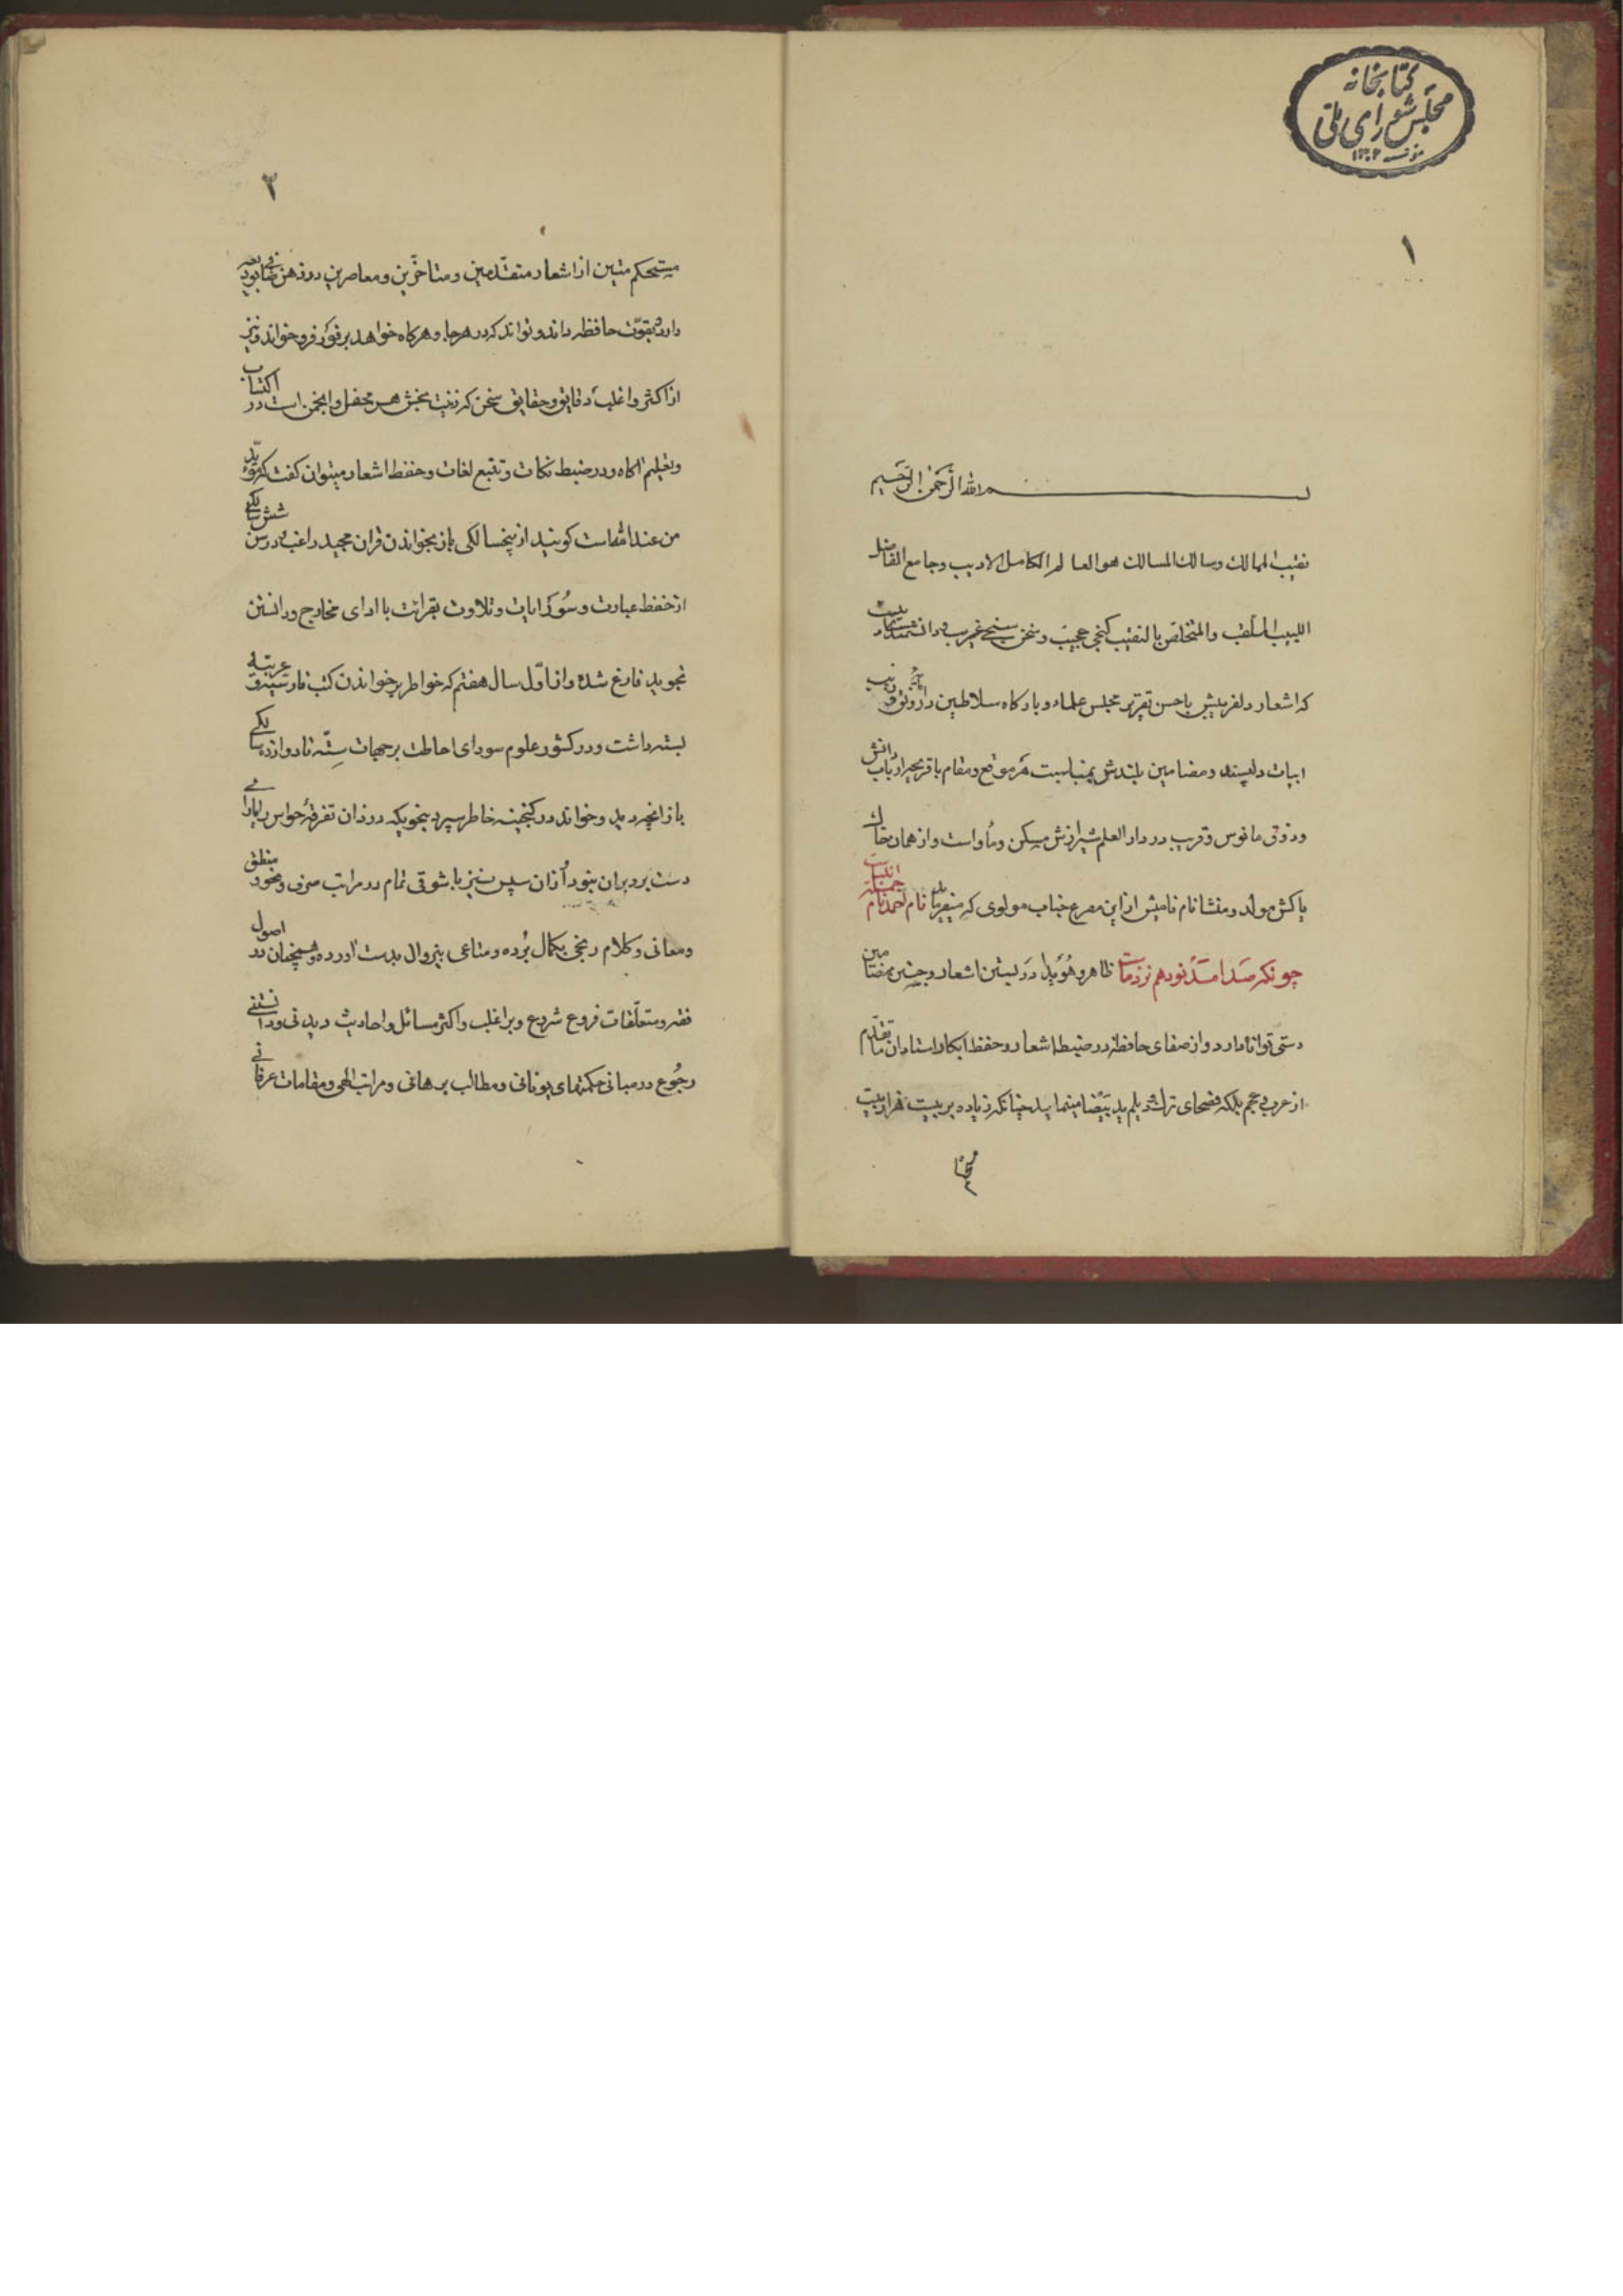 کتابخانه
مجلس شورای ملی
۱
بسم الله الرحمن الرحیم
نقیب الممالک وسالک المسالک هو العالم الکامل الادیب وجامع الفاضل
اللبیب الملقب والمتخلص بالنقیب گنجی عجیب وسخن سنجی غریب دانشمند
که اشعار دلفریبش باحسن تقریر مجلس علماء وبارگاه سلاطین را رونق و زیب
ابیات دلپسند ومضامین بلندش بمناسبت هر موقع ومقام باقریحه ارباب دانش
وذوق مانوس وقریب در دار العلم شیرازش مسکن ومأواست واز همان خاک
پاکش مولد ومنشا نام نامیش ازاین مصرع جناب مولوی که میفرماید نام احمد نام جمله انبیاست
چونکه صد امد نود هم نزد ماست ظاهر وهویدا در بستن اشعار وجستن مضامین
دستی توانا دارد واز صفای حافظه در ضبط اشعار وحفظ ابکار استادان ما تقدم
از عرب وعجم بلکه فصحای ترک ودیلم ید بیضا مینماید چنانکه زیاده بر بیست هزار بیت
۲
مستحکم متین از اشعار متقدمین ومتاخرین ومعاصرین در ذهن
دارد بقوت حافظه داند وتواند که در هرجا وهرگاه خواهد بر فور فرو خواند ونیز
از اکثر واغلب دقایق وحقایق سخن که زینت بخش هر محفل وانجمن است در اکتساب
وتعلیم آگاه ودر ضبط نکات وتتبع لغات وحفظ اشعار میتوان گفت که مؤید
من عند الله است گویند از پنجسالگی باز بخواندن قران مجید راغب ودر سن شش سالگی
از حفظ عبارت وسور وایات وتلاوت بقرائت با ادای مخارج ودانستن
تجوید فارغ شده واز اول سال هفتم که خواطر بر خواندن کتب فارسیه و عربیه
بسته داشت ودر کشور علوم سودای احاطت بر جهات سته تا دوازده سالگی
باز انچه دید وخواند در گنجینه خاطر سپرد بنحویکه دزدان تفرقهٔ حواس را یارای
دست برد بران نبود از ان سپس نیز با شوقی تمام در مراتب صرف ونحو و منطق
ومعانی وکلام رنجی بکمال برده ومتاعی بیزوال بدست آورده وهمچنان در اصول
فقه ومتعلقات فروع شروع وبر اغلب واکثر مسائل واحادیث دیدنی ودانستنی
رجوع در مبانی حکمتهای یونانی ومطالب برهانی ومراتب الهی ومقامات عرفانی